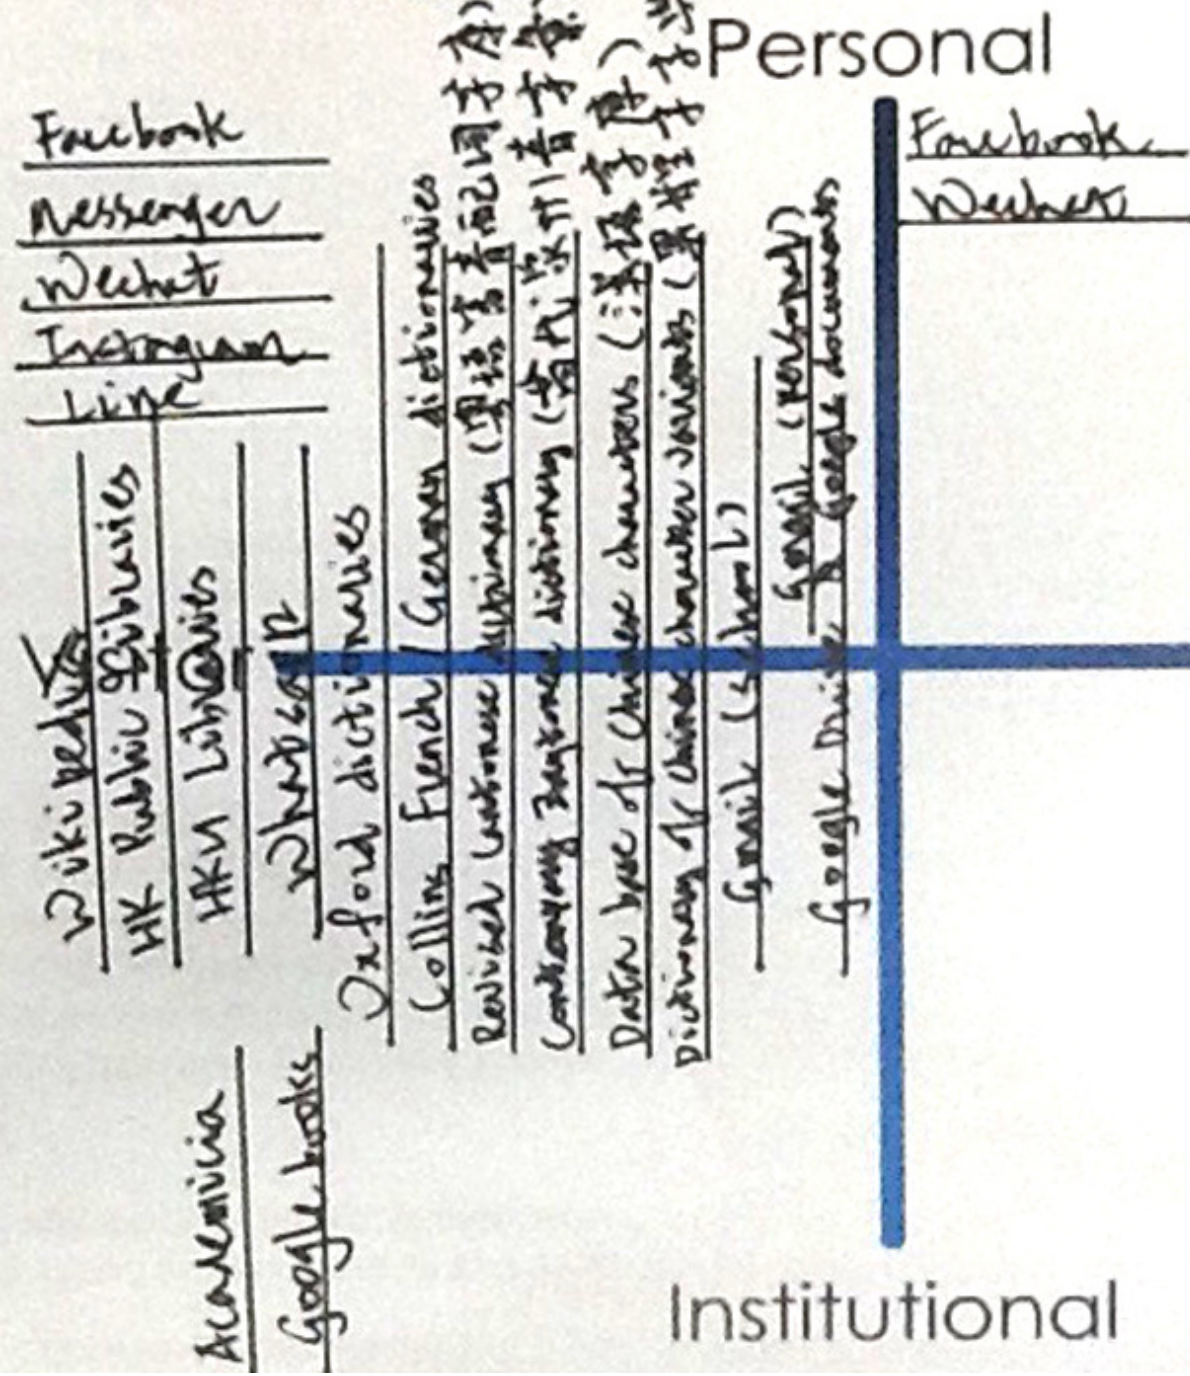 Personal
Facebook
Messenger
Wechat
Instagram
Line
Facebook
Wechat
Wikipedia
HK Public Libraries
HKU Libraries
Whatsapp
Oxford dictionaries
Collins French / German dictionaries
Revised Cantonese
dictionary
Data base of Chinese characters (漢語字庫)
Dictionary of Chinese character variants
Gmail (school)
Gmail (personal)
Google Drive & Google documents
Academicia
Google books
Institutional